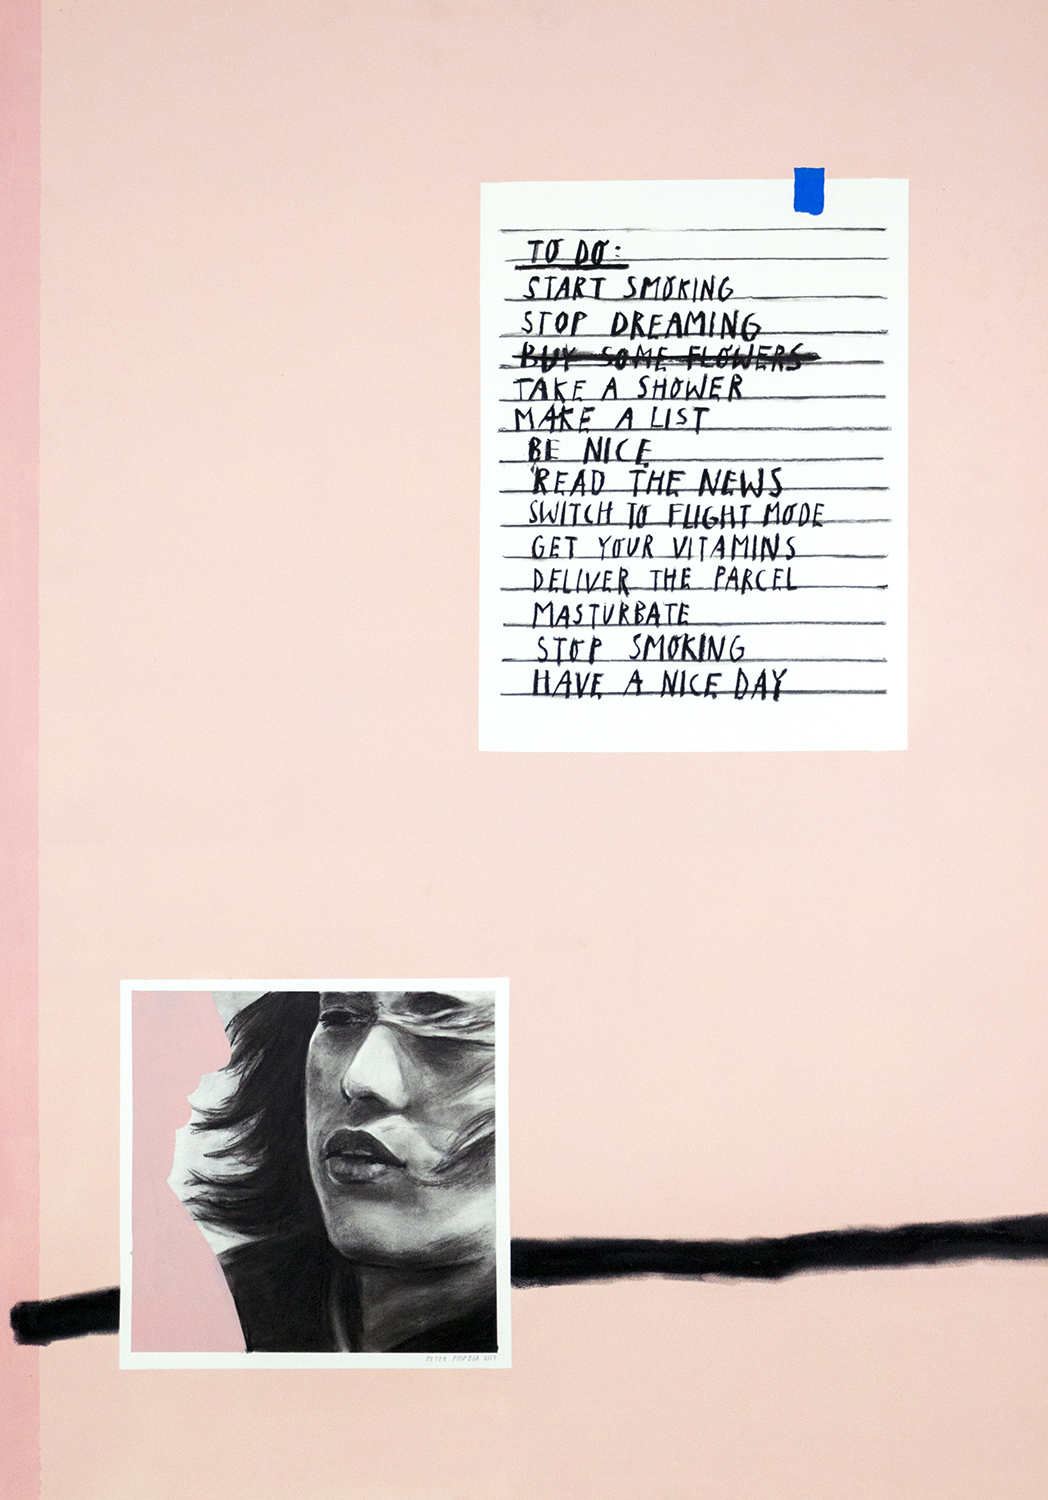 TO DO:
START SMOKING
STOP DREAMING
BUY SOME FLOWERS
TAKE A SHOWER
MAKE A LIST
BE NICE
READ THE NEWS
SWITCH TO FLIGHT MODE
GET YOUR VITAMINS
DELIVER THE PARCEL
MASTURBATE
STOP SMOKING
HAVE A NICE DAY
PETER